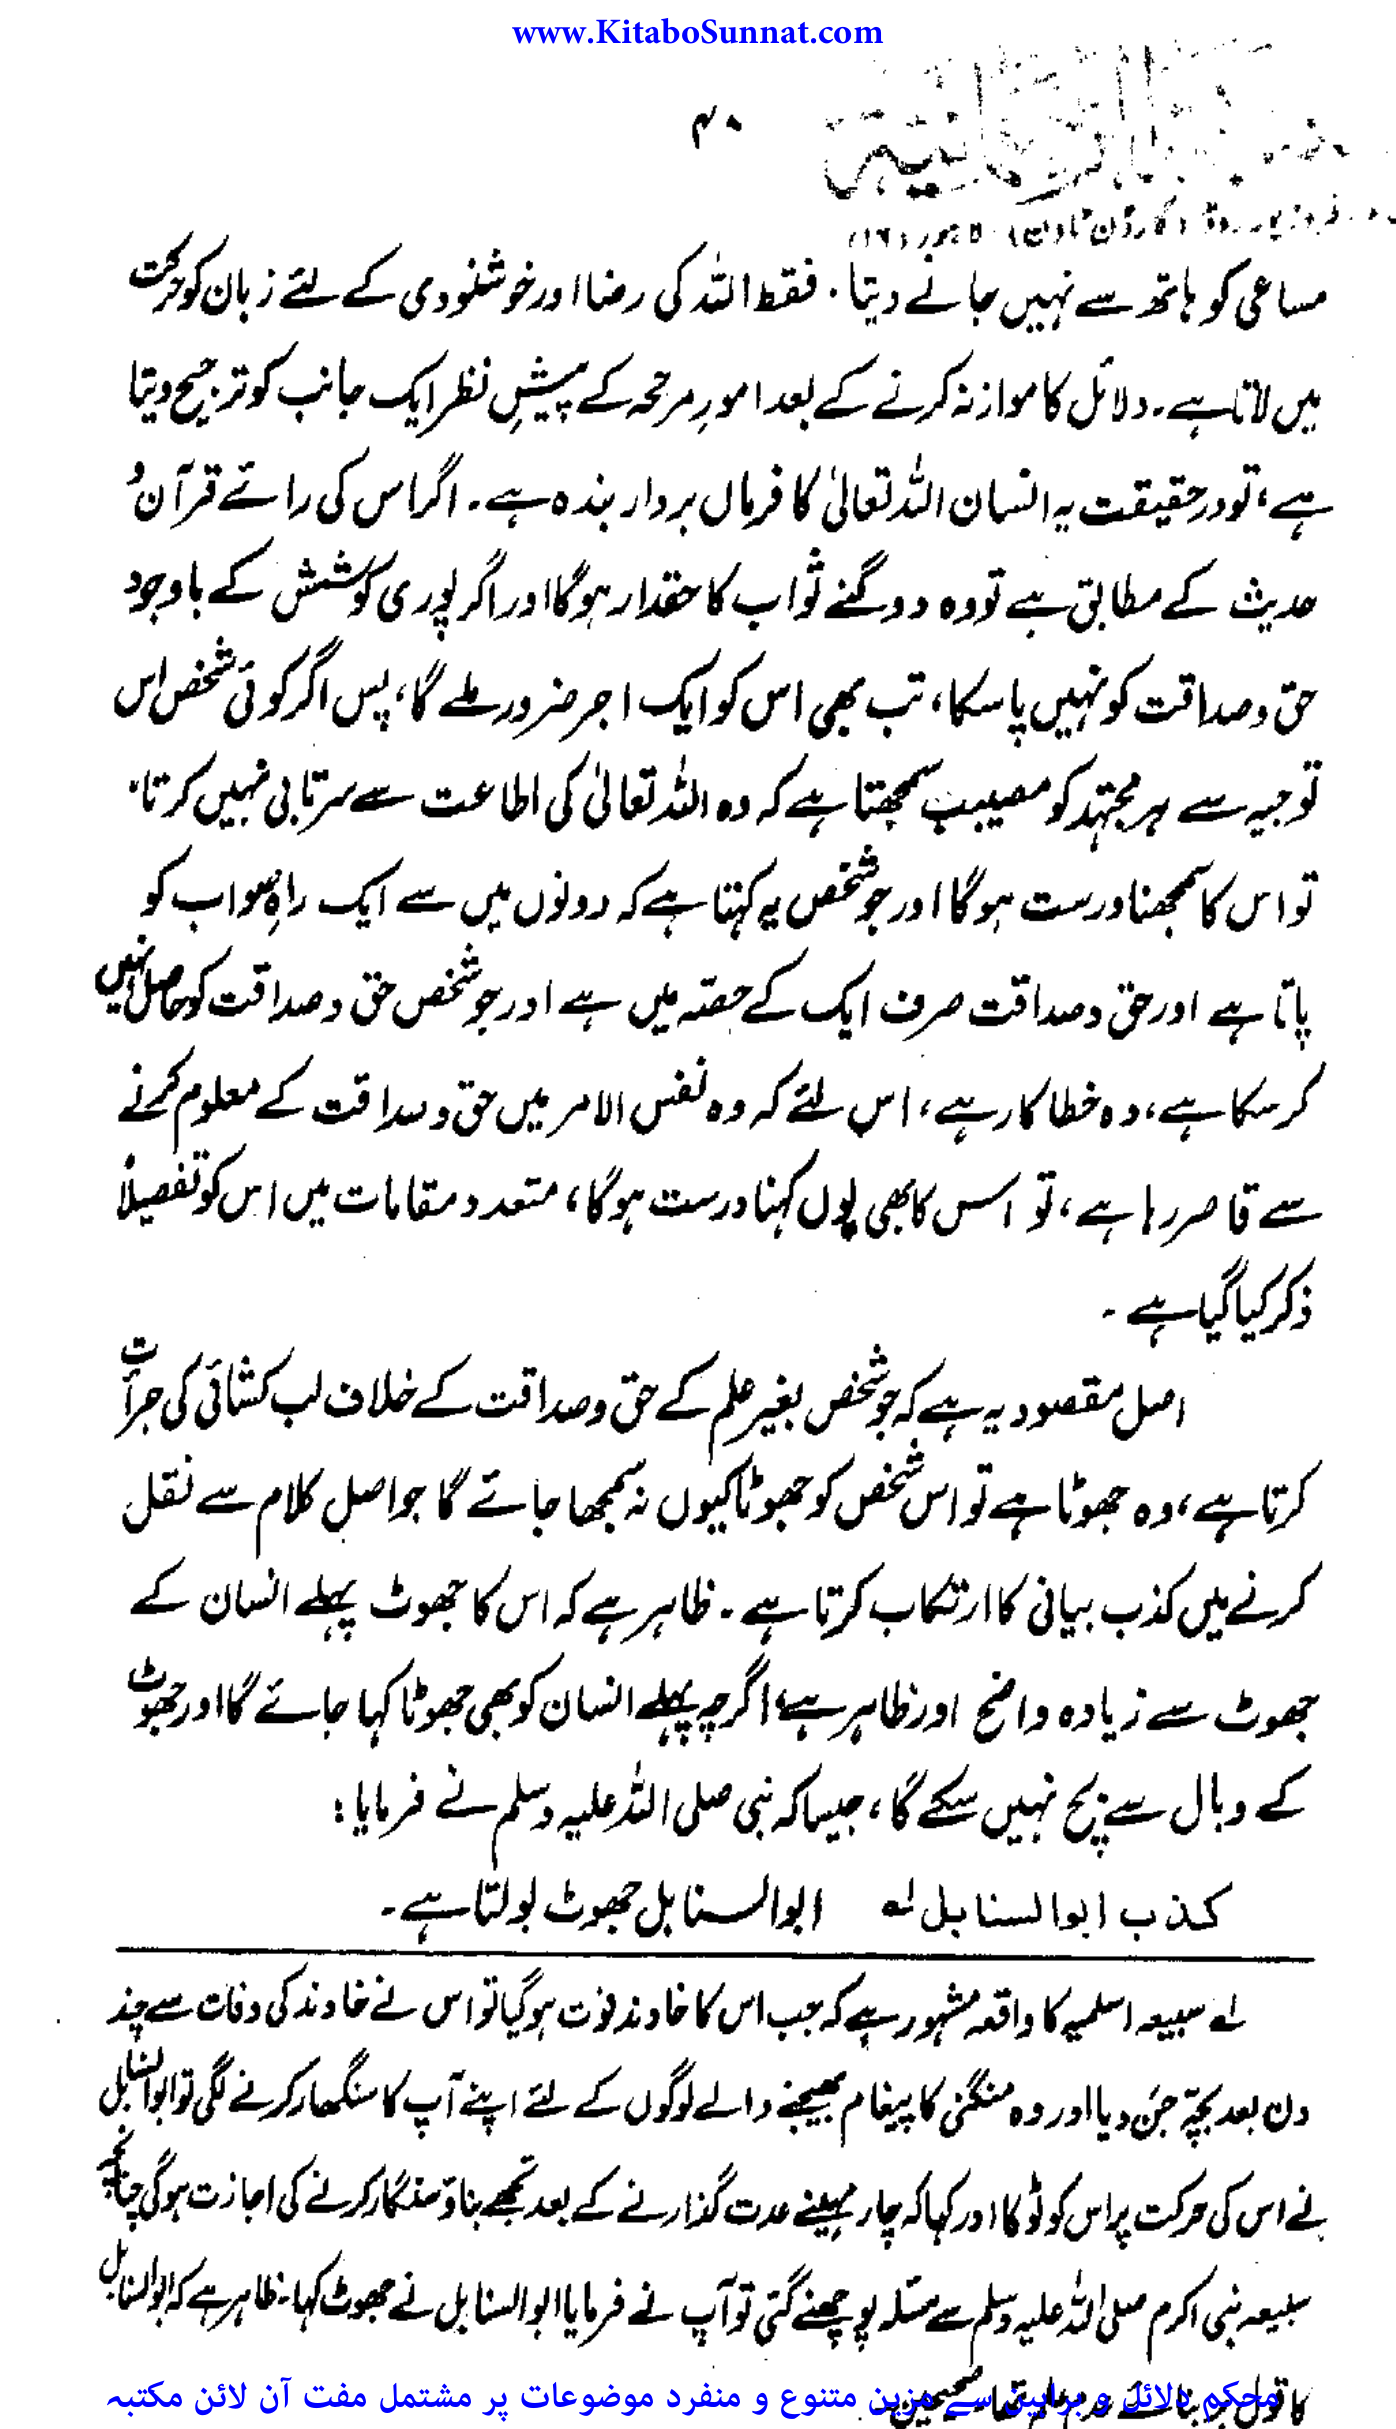 www.KitaboSunnat.com
۴۰
فیروز پور روڈ (گارڈن ٹاؤن) لاہور (۱۶)
مساعی کو ہاتھ سے نہیں جانے دیتا۔ فقط اللہ کی رضا اور خوشنودی کے لئے زبان کو حرکت
میں لاتا ہے۔ دلائل کا موازنہ کرنے کے بعد امورِ مرجحہ کے پیشِ نظر ایک جانب کو ترجیح دیتا
ہے، تو درحقیقت یہ انسان اللہ تعالیٰ کا فرماں بردار بندہ ہے۔ اگر اس کی رائے قرآن و
حدیث کے مطابق ہے تو وہ دوگنے ثواب کا حقدار ہوگا اور اگر پوری کوشش کے باوجود
حق و صداقت کو نہیں پاسکا، تب بھی اس کو ایک اجر ضرور ملے گا، پس اگر کوئی شخص اس
توجیہ سے ہر مجتہد کو مصیب سمجھتا ہے کہ وہ اللہ تعالیٰ کی اطاعت سے سرتابی نہیں کرتا،
تو اس کا سمجھنا درست ہوگا اور جو شخص یہ کہتا ہے کہ دونوں میں سے ایک راہِ صواب کو
پاتا ہے اور حق و صداقت صرف ایک کے حصّہ میں ہے اور جو شخص حق و صداقت کو حاصل نہیں
کر سکا ہے، وہ خطا کار ہے، اس لئے کہ وہ نفس الامر میں حق و صداقت کے معلوم کرنے
سے قاصر رہا ہے، تو اس کا بھی یوں کہنا درست ہوگا، متعدد مقامات میں اس کو تفصیلاً
ذکر کیا گیا ہے ۔
اصل مقصود یہ ہے کہ جو شخص بغیر علم کے حق و صداقت کے خلاف لب کشائی کی جرأت
کرتا ہے، وہ جھوٹا ہے تو اس شخص کو جھوٹا کیوں نہ سمجھا جائے گا جو اصل کلام سے نقل
کرنے میں کذب بیانی کا ارتکاب کرتا ہے ۔ ظاہر ہے کہ اس کا جھوٹ پہلے انسان کے
جھوٹ سے زیادہ واضح اور ظاہر ہے، اگرچہ پہلے انسان کو بھی جھوٹا کہا جائے گا اور جھوٹ
کے وبال سے بچ نہیں سکے گا، جیسا کہ نبی صلی اللہ علیہ وسلم نے فرمایا :
کذب ابوالسنابل لہ ابوالسنابل جھوٹ بولتا ہے ۔
لہ سبیعہ اسلمیہ کا واقعہ مشہور ہے کہ جب اس کا خاوند فوت ہو گیا تو اس نے خاوند کی وفات سے چند
دن بعد بچّہ جن دیا اور وہ منگنی کا پیغام بھیجنے والے لوگوں کے لئے اپنے آپ کا سنگھار کرنے لگی تو ابوالسنابل
نے اس کی حرکت پر اس کو ٹوکا اور کہا کہ چار مہینے عدت گذارنے کے بعد تجھے بناؤ سنگار کرنے کی اجازت ہوگی چنانچہ
سبیعہ نبی اکرم صلی اللہ علیہ وسلم سے مسئلہ پوچھنے گئی تو آپ نے فرمایا ابوالسنابل نے جھوٹ کہا۔ ظاہر ہے کہ ابوالسنابل
کا قول بر بنائے عدم علم تھا۔ صحیحین
محکم دلائل و براہین سے مزین متنوع و منفرد موضوعات پر مشتمل مفت آن لائن مکتبہ